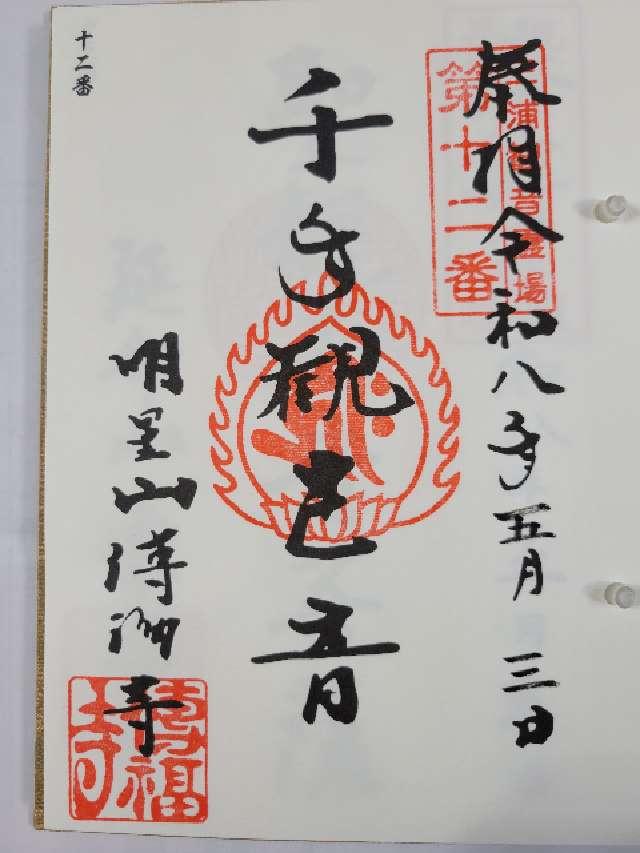 奉拝 令和八年五月三日
三浦観音霊場
第十二番
千手観世音
明星山傳福寺
傳福寺
十二番